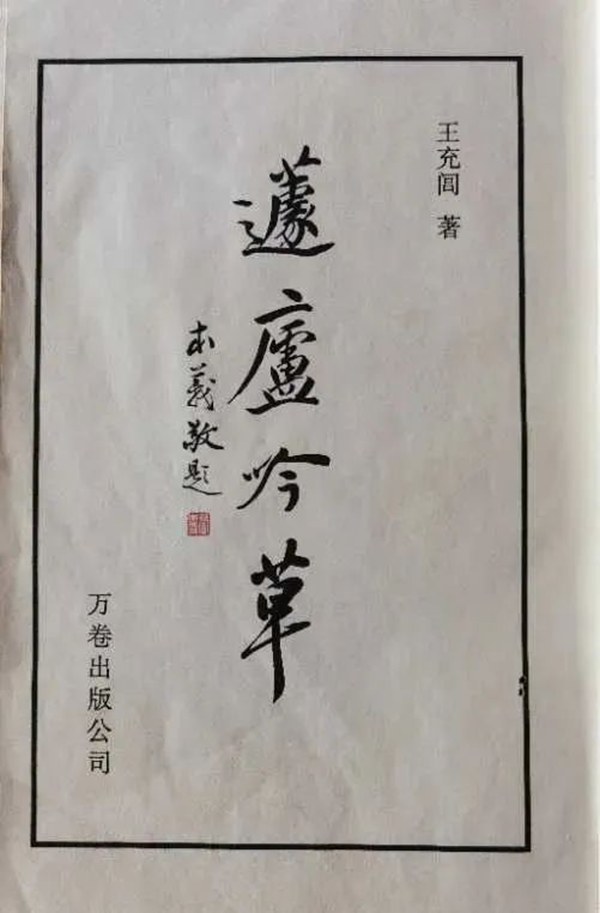 王充闾 著
蘧廬吟草
本義敬题
万卷出版公司